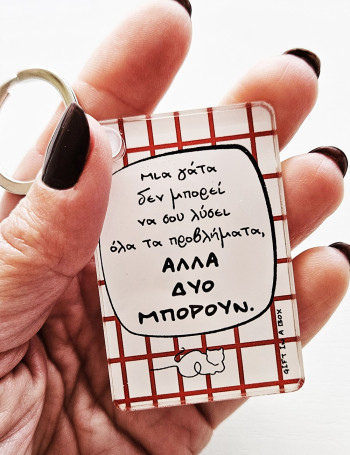 Μια γάτα
δεν μπορεί
να σου λύσει
όλα τα προβλήματα,
ΑΛΛΑ
ΔΥΟ
ΜΠΟΡΟΥΝ.
GIFT IN A BOX